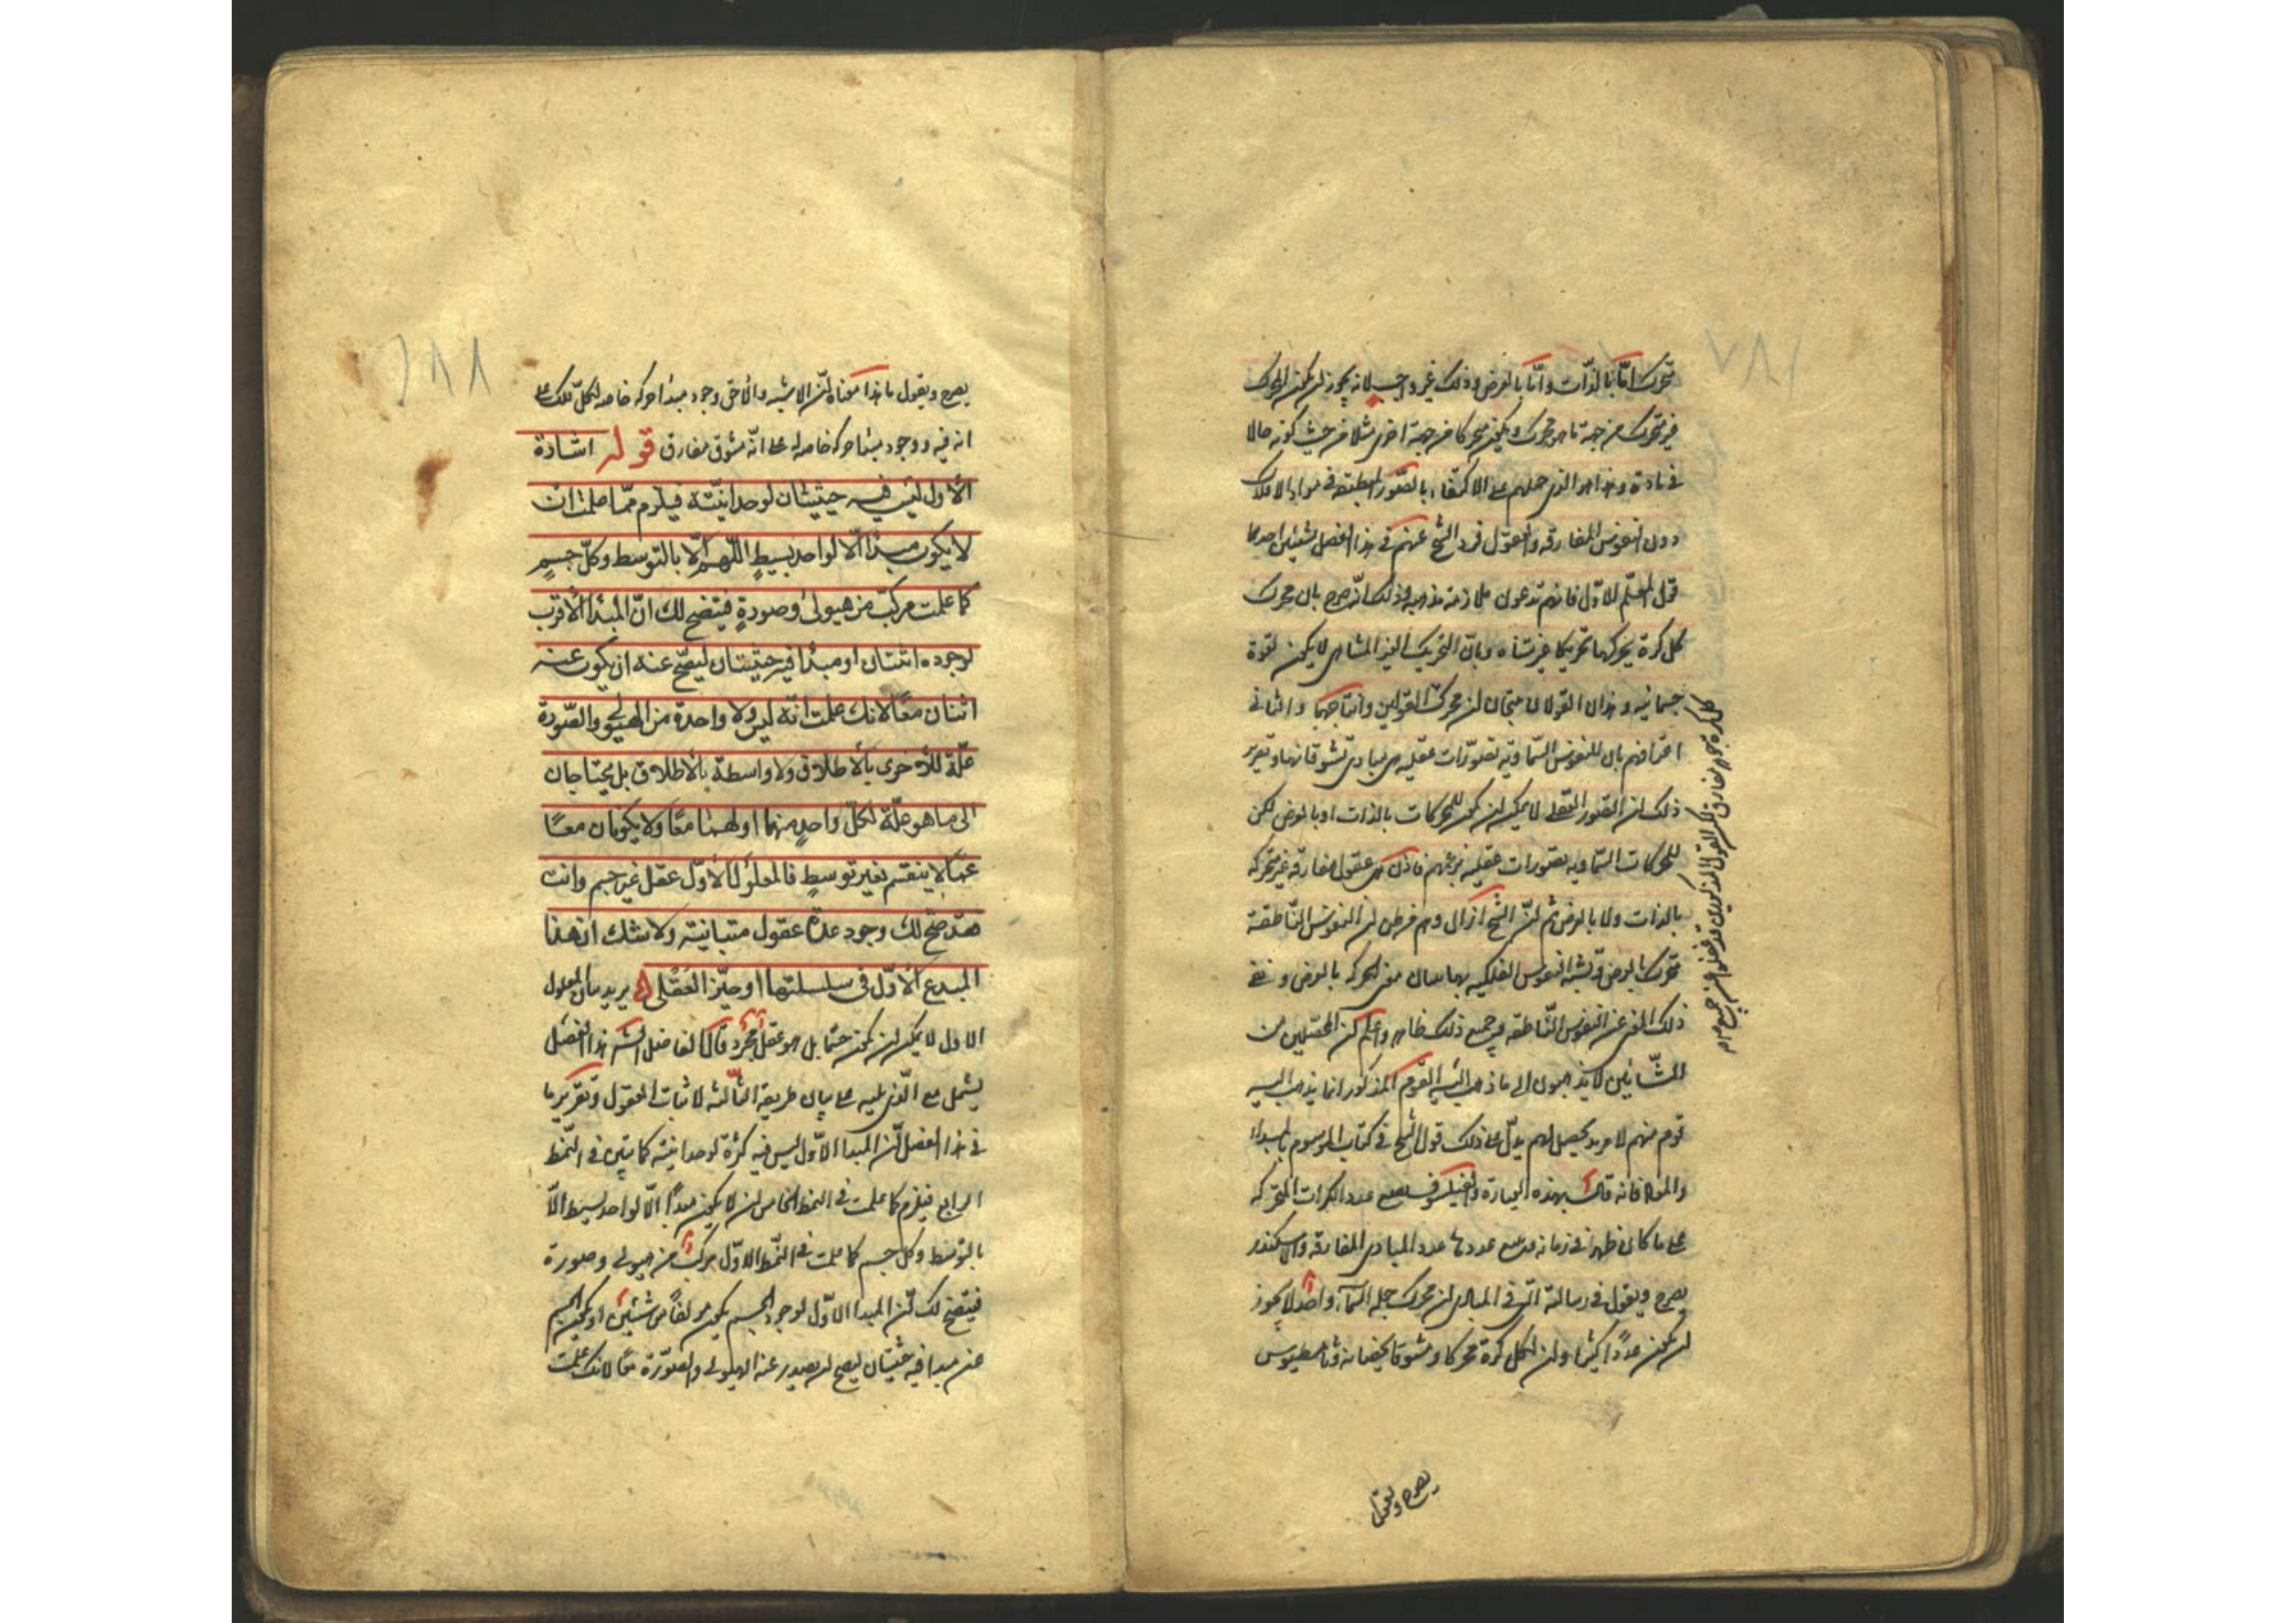 ١٨٧
متحرك امّا بالذّات وامّا بالعرض وذلك غير واجب لانه يجوز ان يكون المحرك
غير متحرك من جهة ما هو محرك ويكون متحركا من جهة اخرى مثلا من حيث كونه حالا
فى مادة وهذا هو الذى حملهم على الاكتفاء بالصّور المنطبعة فى مواد الافلاك
دون النفوس المفارقة والعقول فرد الشيخ عنهم فى هذا الفصل بشيئين احدهما
قول المعلّم الاوّل فانهم يدعون ملازمة مذهبه وذلك انّه صرح بان محرك
كل كرة يحركها تحريكا غير متناه وبانّ التحريك الغير المتناهى لا يكون لقوة
جسمانية وهذان القولان ينتجان ان محرك
كل كرة جوهر مفارق لكن القوم المذكورين قد غفلوا عن جمع
القولين وانتاجهما والثانى
اعترافهم بان للنفوس السّماوية تصوّرات عقليه هى مبادى تشوقاتها وتقرير
ذلك ان التصور العقلى لا يمكن ان يكون للمحركات بالذات او بالعرض لكن
للمحركات السّماويه تصورات عقليه برعمهم فاذن هى عقول مفارقة غير متحركه
بالذات ولا بالعرض ثم انّ الشيخ ازال وهم من ظن ان النفوس النّاطقة
متحرك بالعرض فيشبه النفوس الفلكيه بها ببيان معنى الحركه بالعرض ونفى
ذلك المعنى عن النفوس النّاطقه وجميع ذلك ظاهر واعلم ان المحصّلين من
المشّائين لا يذهبون الى ما ذهب اليه القوم المذكور انما يذهب اليه
قوم منهم لا مزيد تحصيل لهم يدلّ على ذلك قول الشيخ فى كتاب الموسوم بالمبدا
والمعاد فانه قال بهذه العبارة والفيلسوف يضع عدد الكرات المتحركه
على ما كان ظهر فى زمانه ويتبع عددها عدد المبادى المفارقه والاسكندر
يصرح ويقول فى رسالته التى فى المبادى ان محرك جملة السّماء واحد لا يجوز
ان يكون عددا كثيرا وان لكل كرة محركا ومشوقا يخصانه وثامسطيوس
يصرح ويقول
١٨٨
يصرح ويقول ما هذا معناه انّ الاشبه والاحق وجود مبدأ حركه خاصه لكل فلك على
انه فيه ووجود مبدأ حركه خاصه له على انّه مشوق مفارق قوله اشارة
الاول ليس فيه حيثيتان لوحدانيّته فيلزم ممّا علمت ان
لا يكون مبدأ الّا لواحد بسيط اللّهم الّا بالتوسط وكلّ جسم
كما علمت مركّب من هيولى وصورة فيتضح لك انّ المبدأ الاقرب
لوجوده اثنتان او مبدأ فيه حيثيتان ليصحّ عنه ان يكون عنه
اثنان معًا لانك علمت انّه ليس ولا واحدة من الهيولى والصّورة
علّة للاخرى بالاطلاق ولا واسطة بالاطلاق بل يحتاجان
الى ما هو علّة لكلّ واحد منهما او لهما معًا ولا يكونان معًا
عمّا لا ينقسم بغير توسط فالمعلول الاوّل عقل غير جسم وانت
فقد صحّ لك وجود عدة عقول متباينة ولا شك ان هذا
المبدع الاوّل فى سلسلتها او حيّز العقلى يريد بيان المعلول
الاول لا يمكن ان يكون جسما بل هو عقل مجرّد قال الفاضل الشه هذا الفصل
يشمل مع الّذى يليه على بيان طريقة الثّالثه لاثبات العقول وتقرير ما
فى هذا الفصل انّ المبدا الاوّل ليس فيه كثرة لوحدانيته كما تبيّن فى النّمط
الرابع فيلزم كما علمت فى النمط الخامس ان لا يكون مبدأ الّا لواحد بسيط الّا
بالتوسط وكل جسم كما علمت فى النّمط الاوّل مركب من هيولى وصورة
فيتضح لك انّ المبدا الاوّل لوجود الجسم يكون مؤلفا من شيئين او يكون الجسم
عن مبدا فيه حيثيتان ليصح ان يصدر عنه الهيولى والصّورة معًا لانك علمت